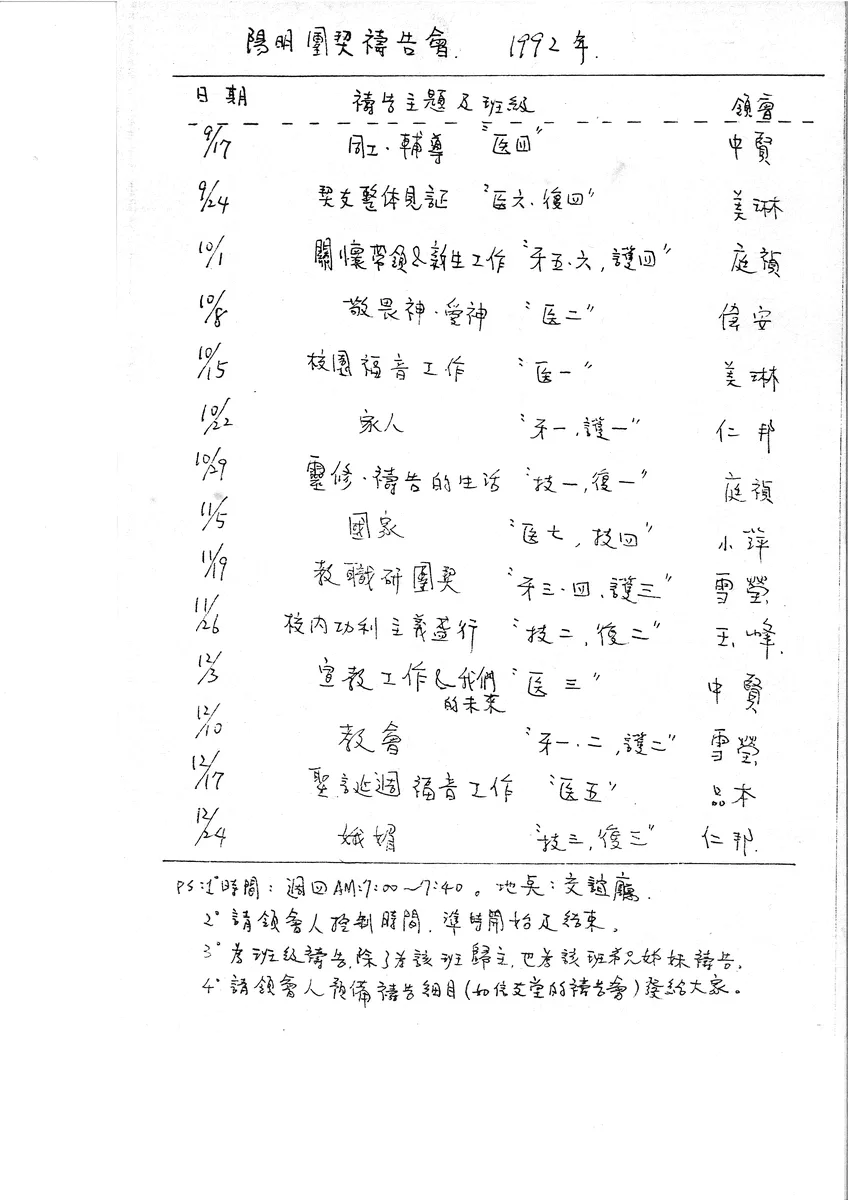 陽明團契禱告會. 1992年.
日期 禱告主題及班級 領會
9/17 同工·輔導 "医四" 中賢
9/24 契友整体見証 "医六.復四" 美琳
10/1 關懷帶領&新生工作 "牙五·六,護四" 庭禎
10/8 敬畏神·愛神 "医二" 偉安
10/15 校園福音工作 "医一" 美琳
10/22 家人 "牙一,護一" 仁邦
10/29 靈修·禱告的生活 "技一,復一" 庭禎
11/5 國家 "医七,技四" 小萍
11/19 教職研團契 "牙三·四,護三" 雪螢
11/26 校內功利主義盛行 "技二,復二" 玉峰.
12/3 宣教工作&我們的未來 "医三" 中賢
12/10 教會 "牙一·二,護二" 雪螢
12/17 聖誕週福音工作 "医五" 品本
12/24 娥媚 "技三,復三" 仁邦.
PS:1°時間:週四AM:7:00~7:40。地點:交誼廳.
2°請領會人控制時間.準時開始及結束。
3°為班級禱告,除了為該班歸主,也為該班弟兄姊妹禱告.
4°請領會人預備禱告細目(如信友堂的禱告會)發給大家。